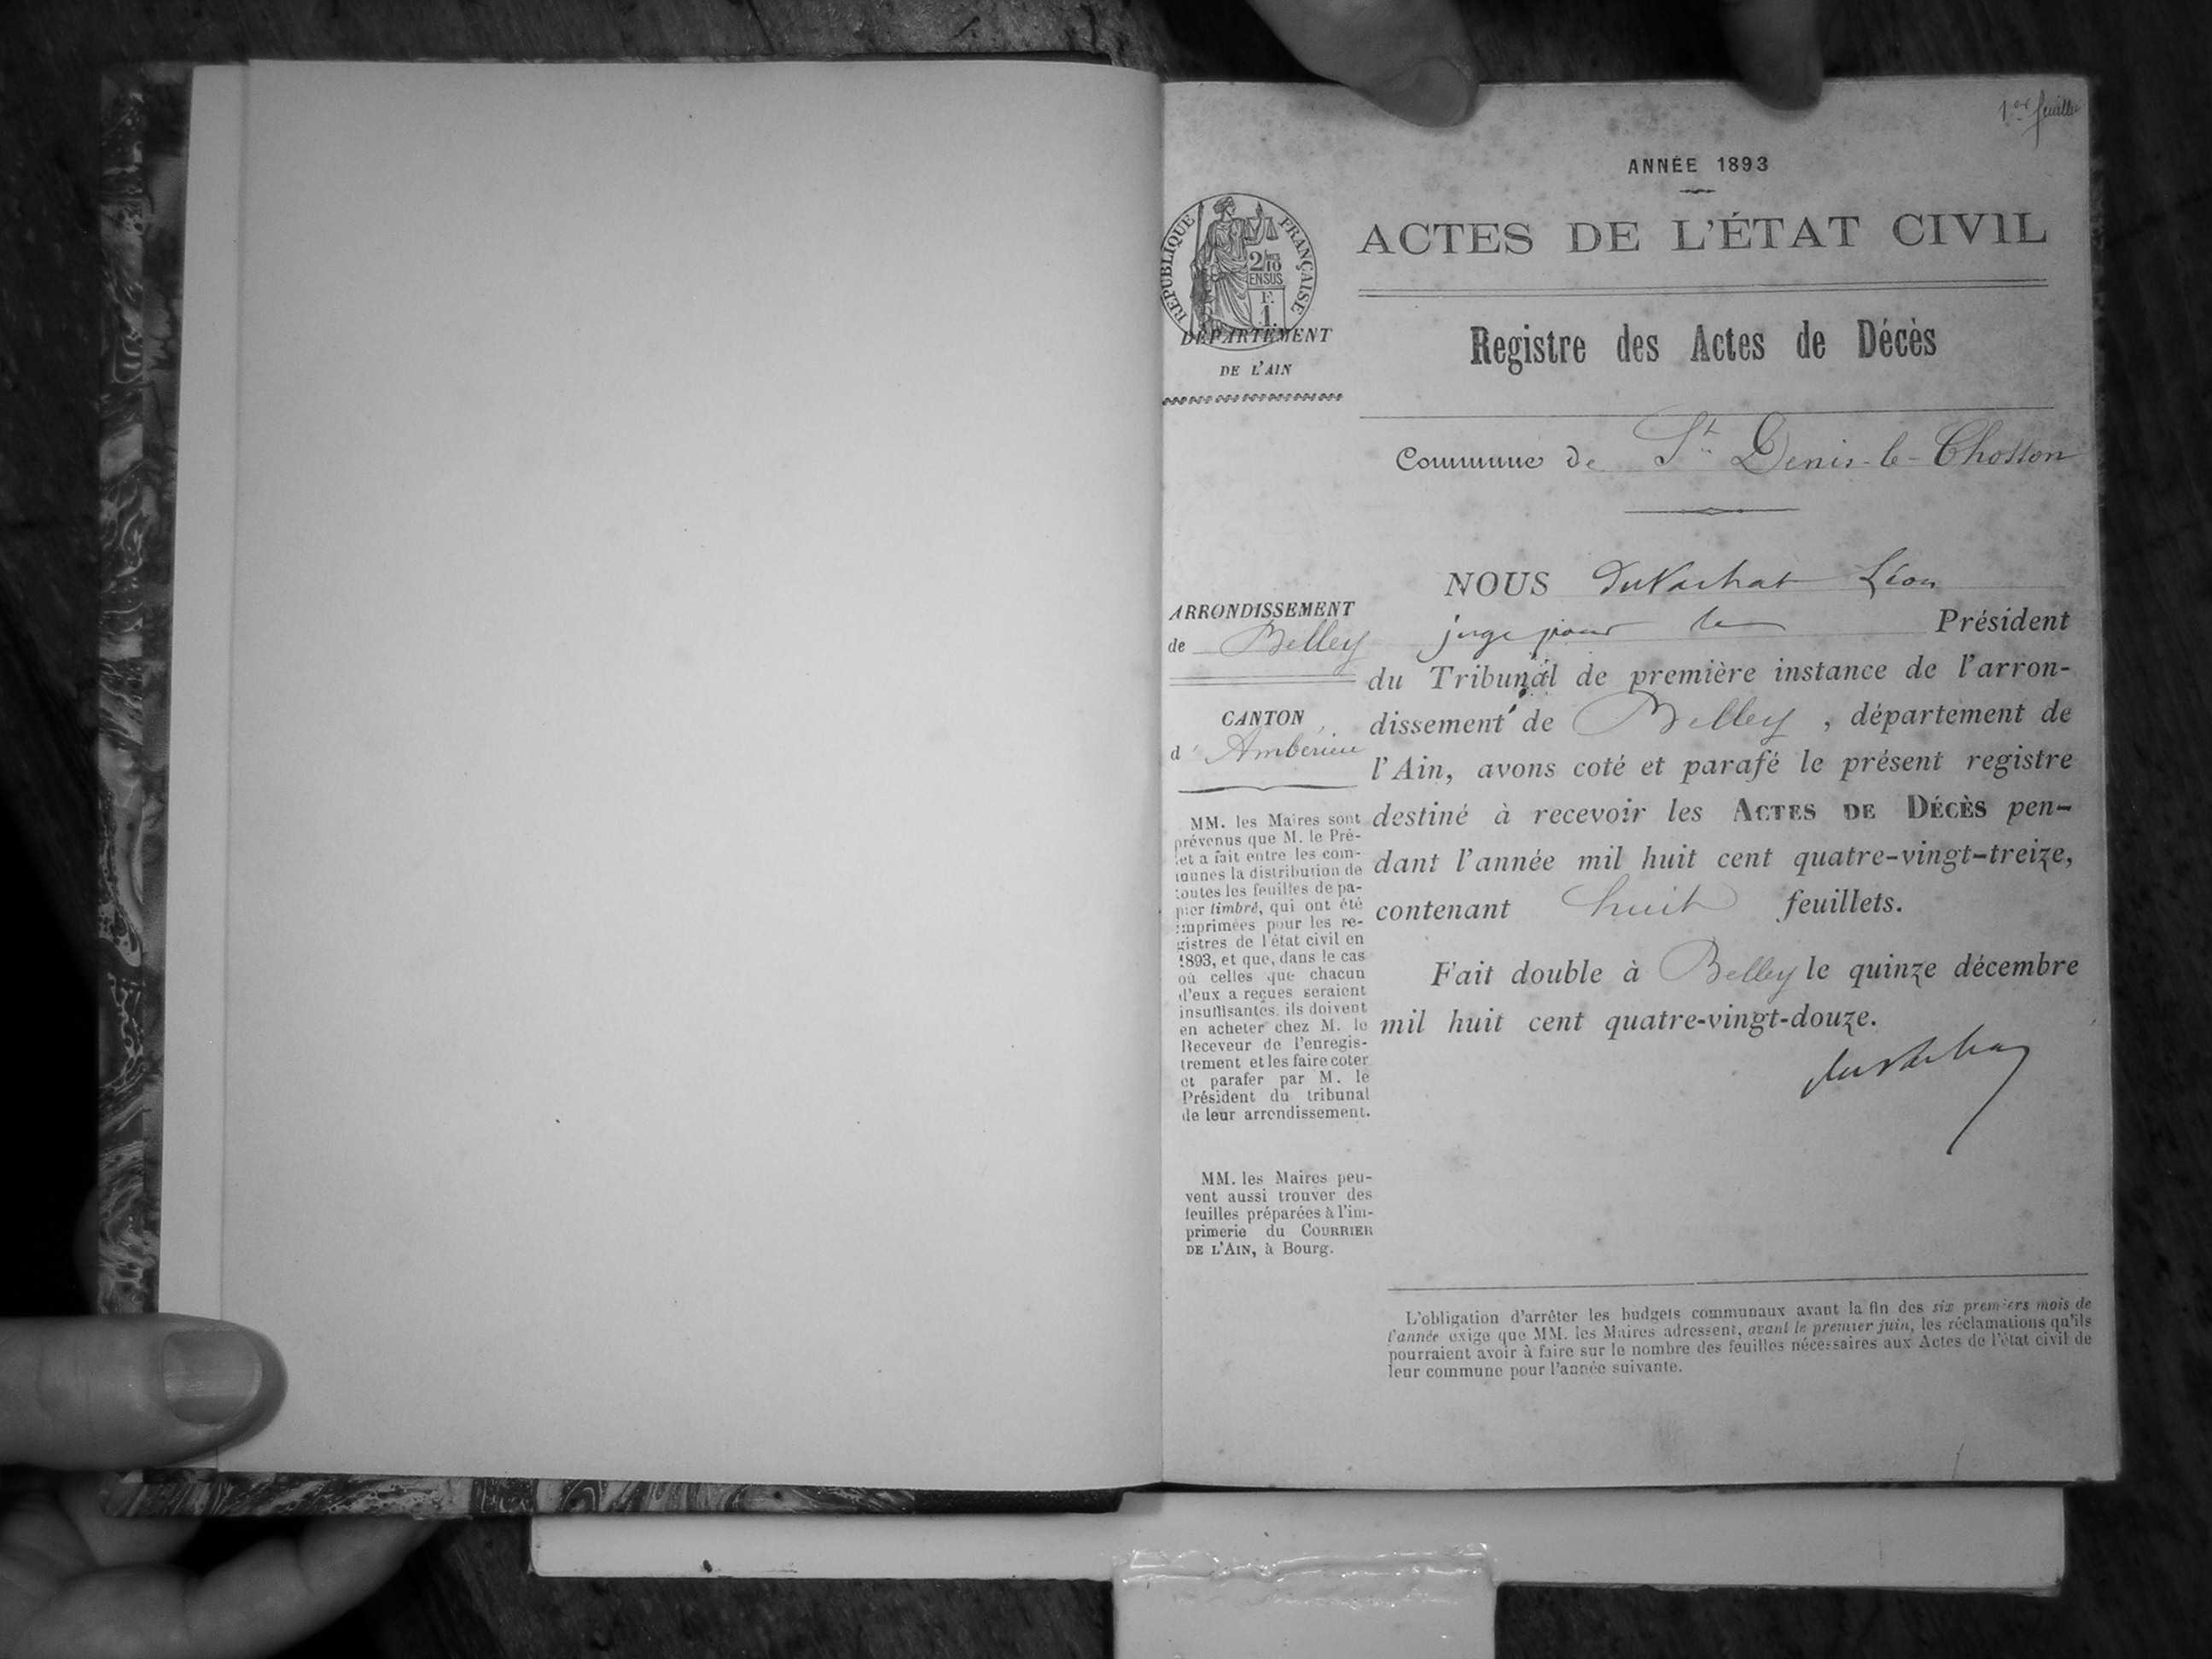 1er feuillet
ANNÉE 1893
RÉPUBLIQUE FRANÇAISE
2/10
EN SUS
F.
1.
ACTES DE L'ÉTAT CIVIL
DÉPARTEMENT
DE L'AIN
Registre des Actes de Décès
Commune de St Denis-le-Chosson
ARRONDISSEMENT
de Belley
CANTON
d' Ambérieu
MM. les Maires sont
prévenus que M. le Pré-
fet a fait entre les com-
munes la distribution de
toutes les feuilles de pa-
pier timbré, qui ont été
imprimées pour les re-
gistres de l'état civil en
1893, et que, dans le cas
où celles que chacun
d'eux a reçues seraient
insuffisantes, ils doivent
en acheter chez M. le
Receveur de l'enregis-
trement et les faire coter
et parafer par M. le
Président du tribunal
de leur arrondissement.
MM. les Maires peu-
vent aussi trouver des
feuilles préparées à l'im-
primerie du COURRIER
DE L'AIN, à Bourg.
NOUS Léon
juge pour le Président
du Tribunal de première instance de l'arron-
dissement de Belley, département de
l'Ain, avons coté et parafé le présent registre
destiné à recevoir les ACTES DE DÉCÈS pen-
dant l'année mil huit cent quatre-vingt-treize,
contenant huit feuillets.
Fait double à Belley le quinze décembre
mil huit cent quatre-vingt-douze.
L'obligation d'arrêter les budgets communaux avant la fin des six premiers mois de
l'année exige que MM. les Maires adressent, avant le premier juin, les réclamations qu'ils
pourraient avoir à faire sur le nombre des feuilles nécessaires aux Actes de l'état civil de
leur commune pour l'année suivante.